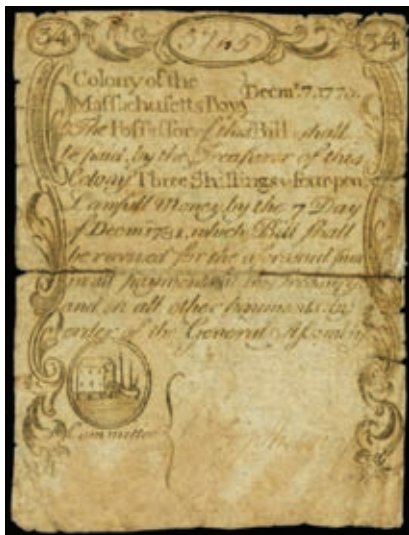 34 3705 34
Colony of the
Massachusetts Bay Decmr. 7, 1775.
The Possessor of this Bill shall
be paid, by the Treasurer of this
Colony Three Shillings & four pen.
Lawfull Money by the 7 Day
of Decmr. 1781, which Bill shall
be received for the aforesaid sum
in all payments at the Treasury
and in all other Payments by
order of the General Assembly
Committee